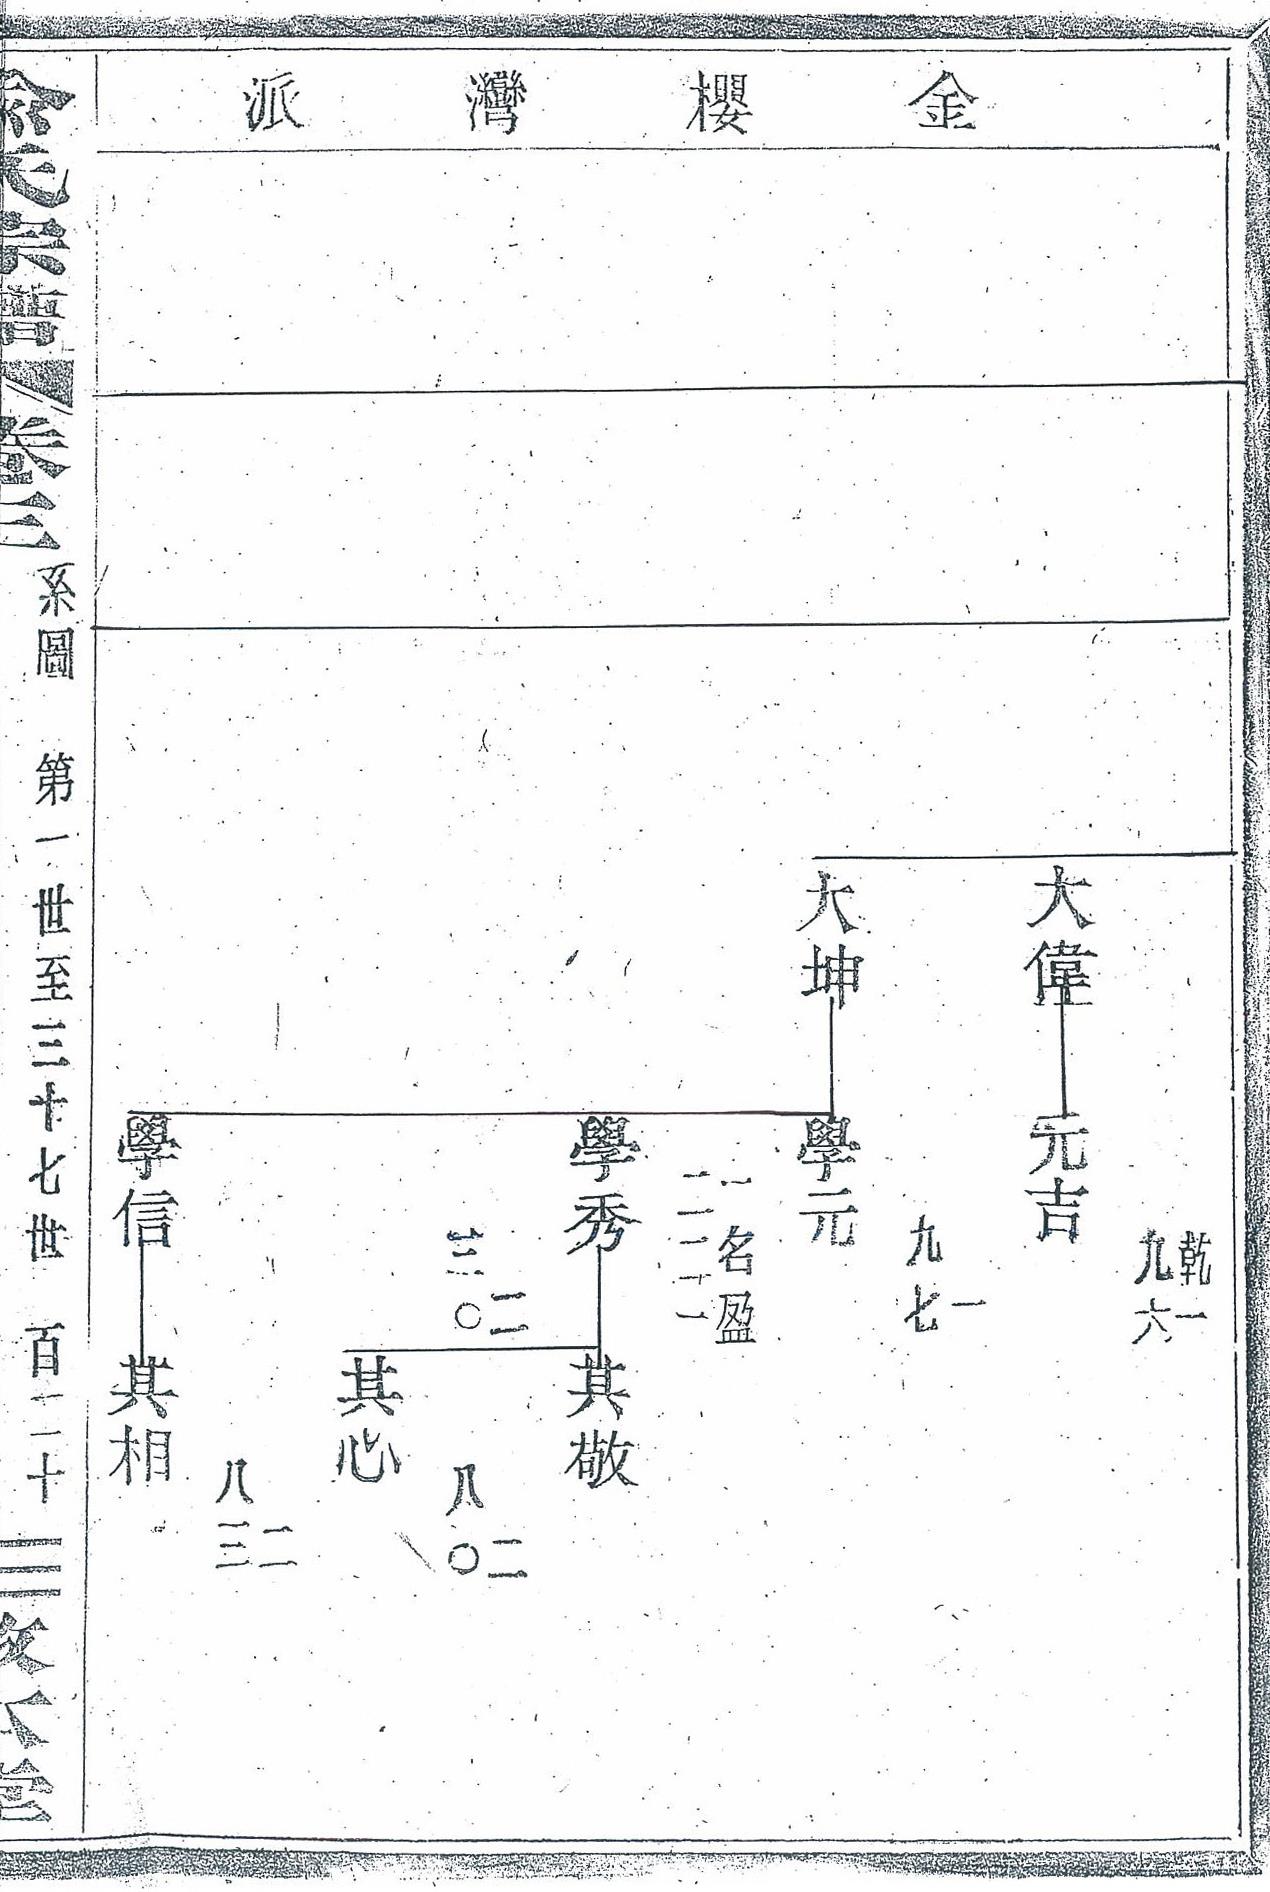 金櫻灣派
大偉
元吉
乾一
九六
大坤
學元
一
九七
學秀
一名盈
其敬
二
三〇
其心
二
八〇
學信
其相
二
八三
宗譜
卷三
系圖 第一世至三十七世 百二十三